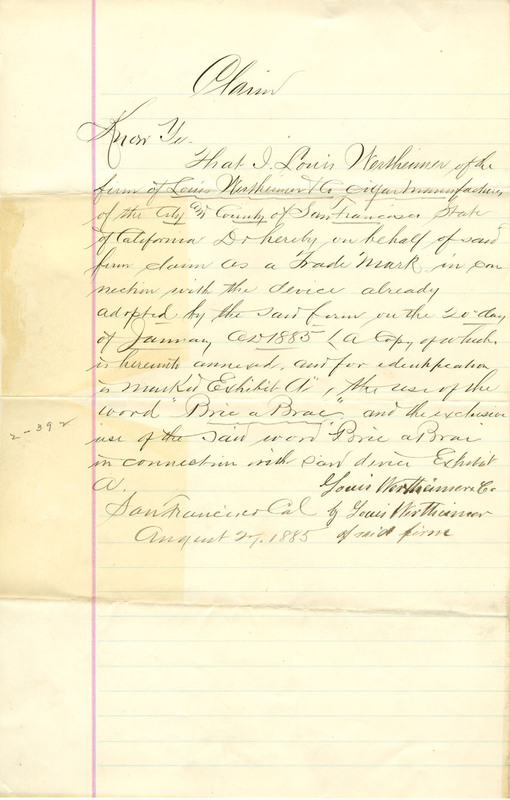 Claim
Know Ye.
That I. Louis Wertheimer, of the
firm of Louis Wertheimer & Co cigar manufacturers
of the City and County of San Francisco State
of California Do hereby on behalf of said
firm claim as a Trade Mark in con
nection with the device already
adopted by the said firm on the 20th day
of January AD 1885 (a copy of which
is hereunto annexed, and for identification
is marked Exhibit A", the use of the
word "Bric a Brac", and the exclusive
use of the said word "Bric a Brac
in connection with said device Exhibit
A.
2-392
Louis Wertheimer & Co
San Francisco Cal by Louis Wertheimer
August 27, 1885 of said firm